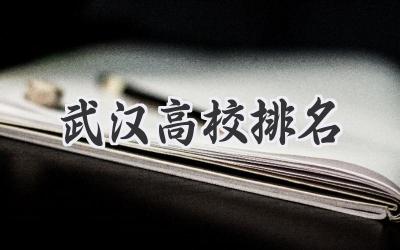 武汉高校排名